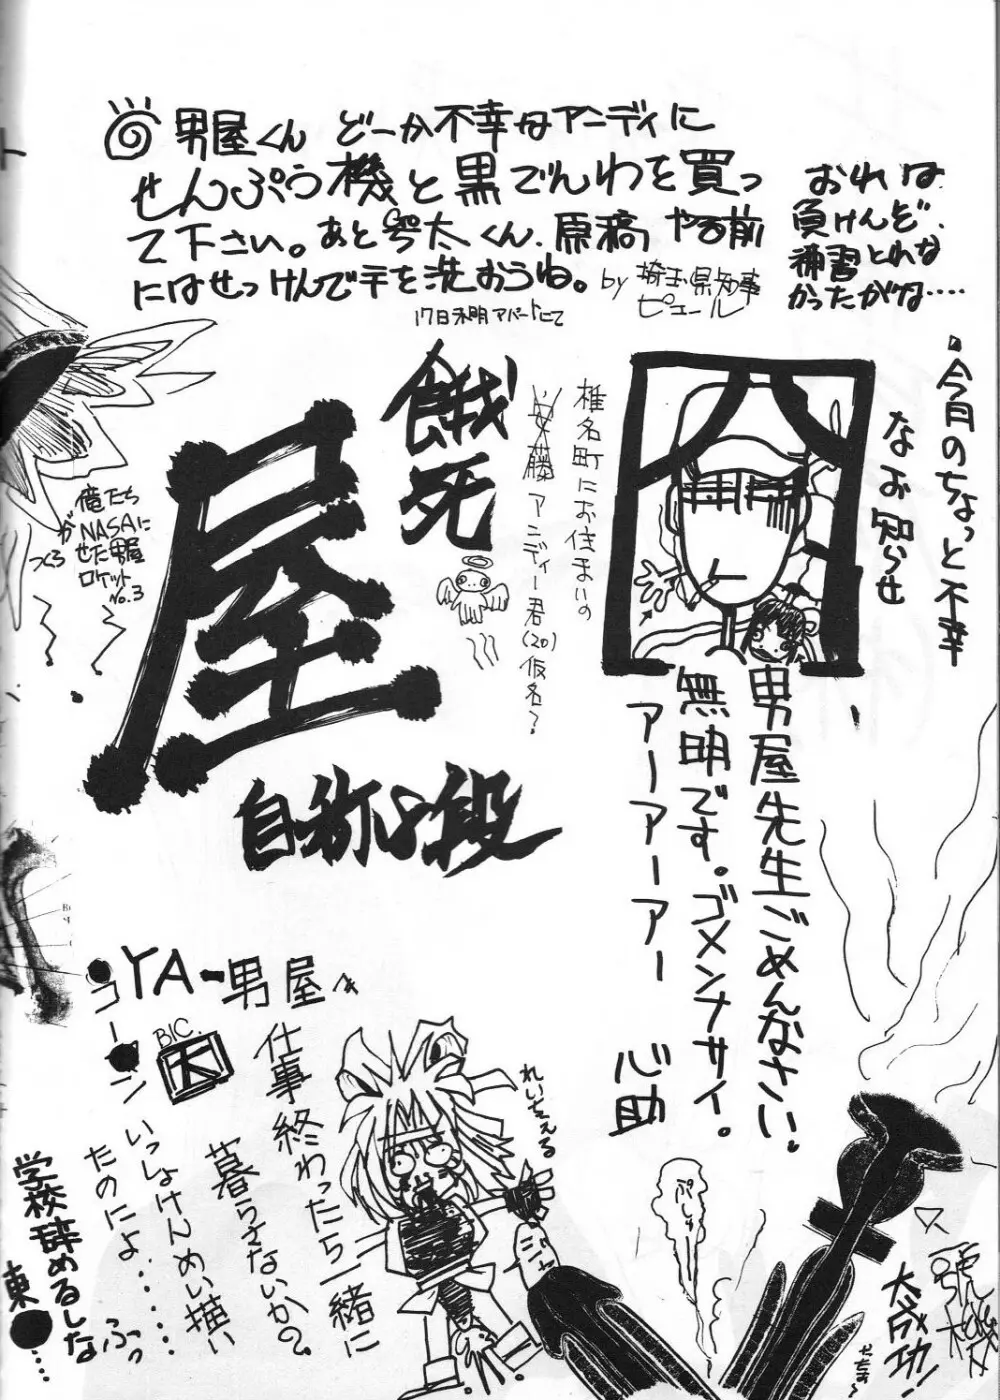 男屋くん どーか不幸なアニディに
せんぷう機と黒でんわを買っ
て下さい。あと太くん、原稿やる前
にはせっけんで手を洗おうね。
by 埼玉県知事
ピュール
17日未明アパートにて
おれは
負けんぞ、
補習とれな
かったがね‥‥
・今月のちょっと不幸
なお知らせ
椎名町にお住まいの
安藤アニディー君(20)仮名?
餓死
屋
自称八段
俺たち
がNASAに
せた男屋
ロケット
No.3
つくろ
男屋先生ごめんなさい、
無明です。ゴメンナサイ。
アーアーアー
心助
YA-男屋
コーン
BIC.
仕事終わったら一緒に
暮らさないか?
いっしょけんめい描い
たのによ‥‥‥ふっ
学校辞めるしな
東●‥
れいちぇる
ぷしゅ
大成功!